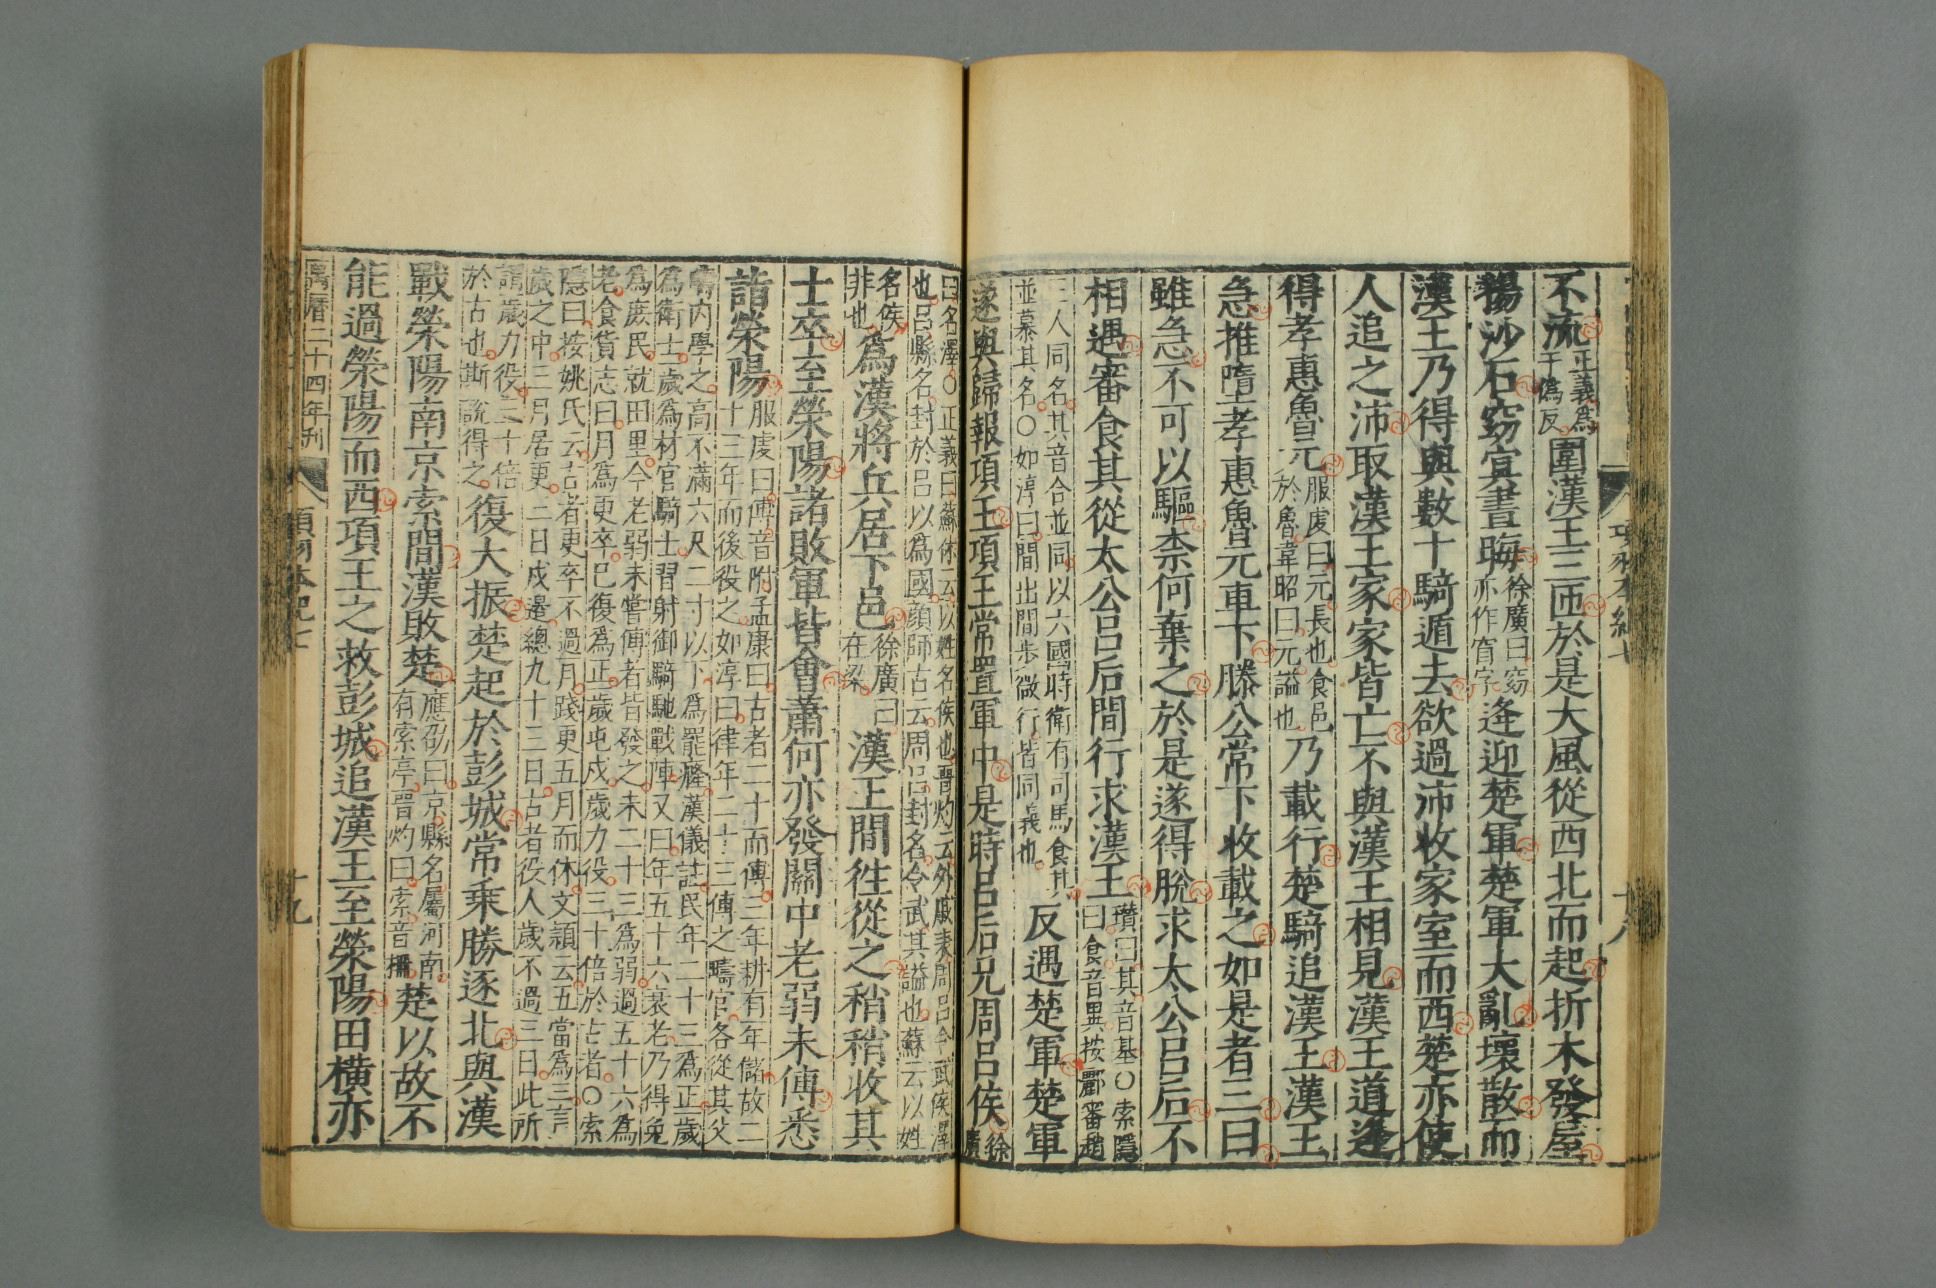 項羽本紀七 十八
不流
正義為
干偽反
圍漢王三匝於是大風從西北而起折木發屋
揚沙石窈冥晝晦
徐廣曰窈
亦作窅字
逢迎楚軍楚軍大亂壞散而
漢王乃得與數十騎遁去欲過沛收家室而西楚亦使
人追之沛取漢王家家皆亡不與漢王相見漢王道逢
得孝惠魯元
服虔曰元長也食邑
於魯韋昭曰元謚也
乃載行楚騎追漢王漢王
急推墮孝惠魯元車下滕公常下收載之如是者三曰
雖急不可以驅柰何棄之於是遂得脫求太公呂后不
相遇審食其從太公呂后間行求漢王
瓚曰其音基○索隱
曰食音異按酈審趙
三人同名其音合並同以六國時衛有司馬食其
並慕其名○如淳曰間出間步微行皆同義也
反遇楚軍楚軍
遂與歸報項王項王常置軍中是時呂后兄周呂侯
徐
廣
曰名澤○正義曰蘇林云以姓名侯也晉灼云外戚表周呂令武侯澤
也呂縣名封於呂以為國顏師古云周呂封名令武其謚也蘇云以姓
名侯
非也
為漢將兵居下邑
徐廣曰
在梁
漢王間往從之稍稍收其
士卒至滎陽諸敗軍皆會蕭何亦發關中老弱未傅悉
詣滎陽
服虔曰傅音附孟康曰古者二十而傅三年耕有一年儲故二
十三年而後役之如淳曰律年二十三傅之疇官各從其父
疇內學之高不滿六尺二寸以下為罷癃漢儀註民年二十三為正一歲
為衛士一歲為材官騎士習射御騎馳戰陣又曰年五十六衰老乃得免
為庶民就田里今老弱未嘗傅者皆發之未二十三為弱過五十六為
老食貨志曰月為更卒已復為正一歲屯戍一歲力役三十倍於古者○索
隱曰按姚氏云古者更卒不過一月踐更五月而休文穎云五當為三言一
歲之中三月居更三日戍邊總九十三日古者役人歲不過三日此所
謂一歲力役三十倍
於古也斯說得之
復大振楚起於彭城常乘勝逐北與漢
戰滎陽南京索間漢敗楚
應劭曰京縣名屬河南
有索亭晉灼曰索音柵
楚以故不
能過滎陽而西項王之救彭城追漢王至滎陽田橫亦
萬曆二十四年刊 項羽本紀七 十九